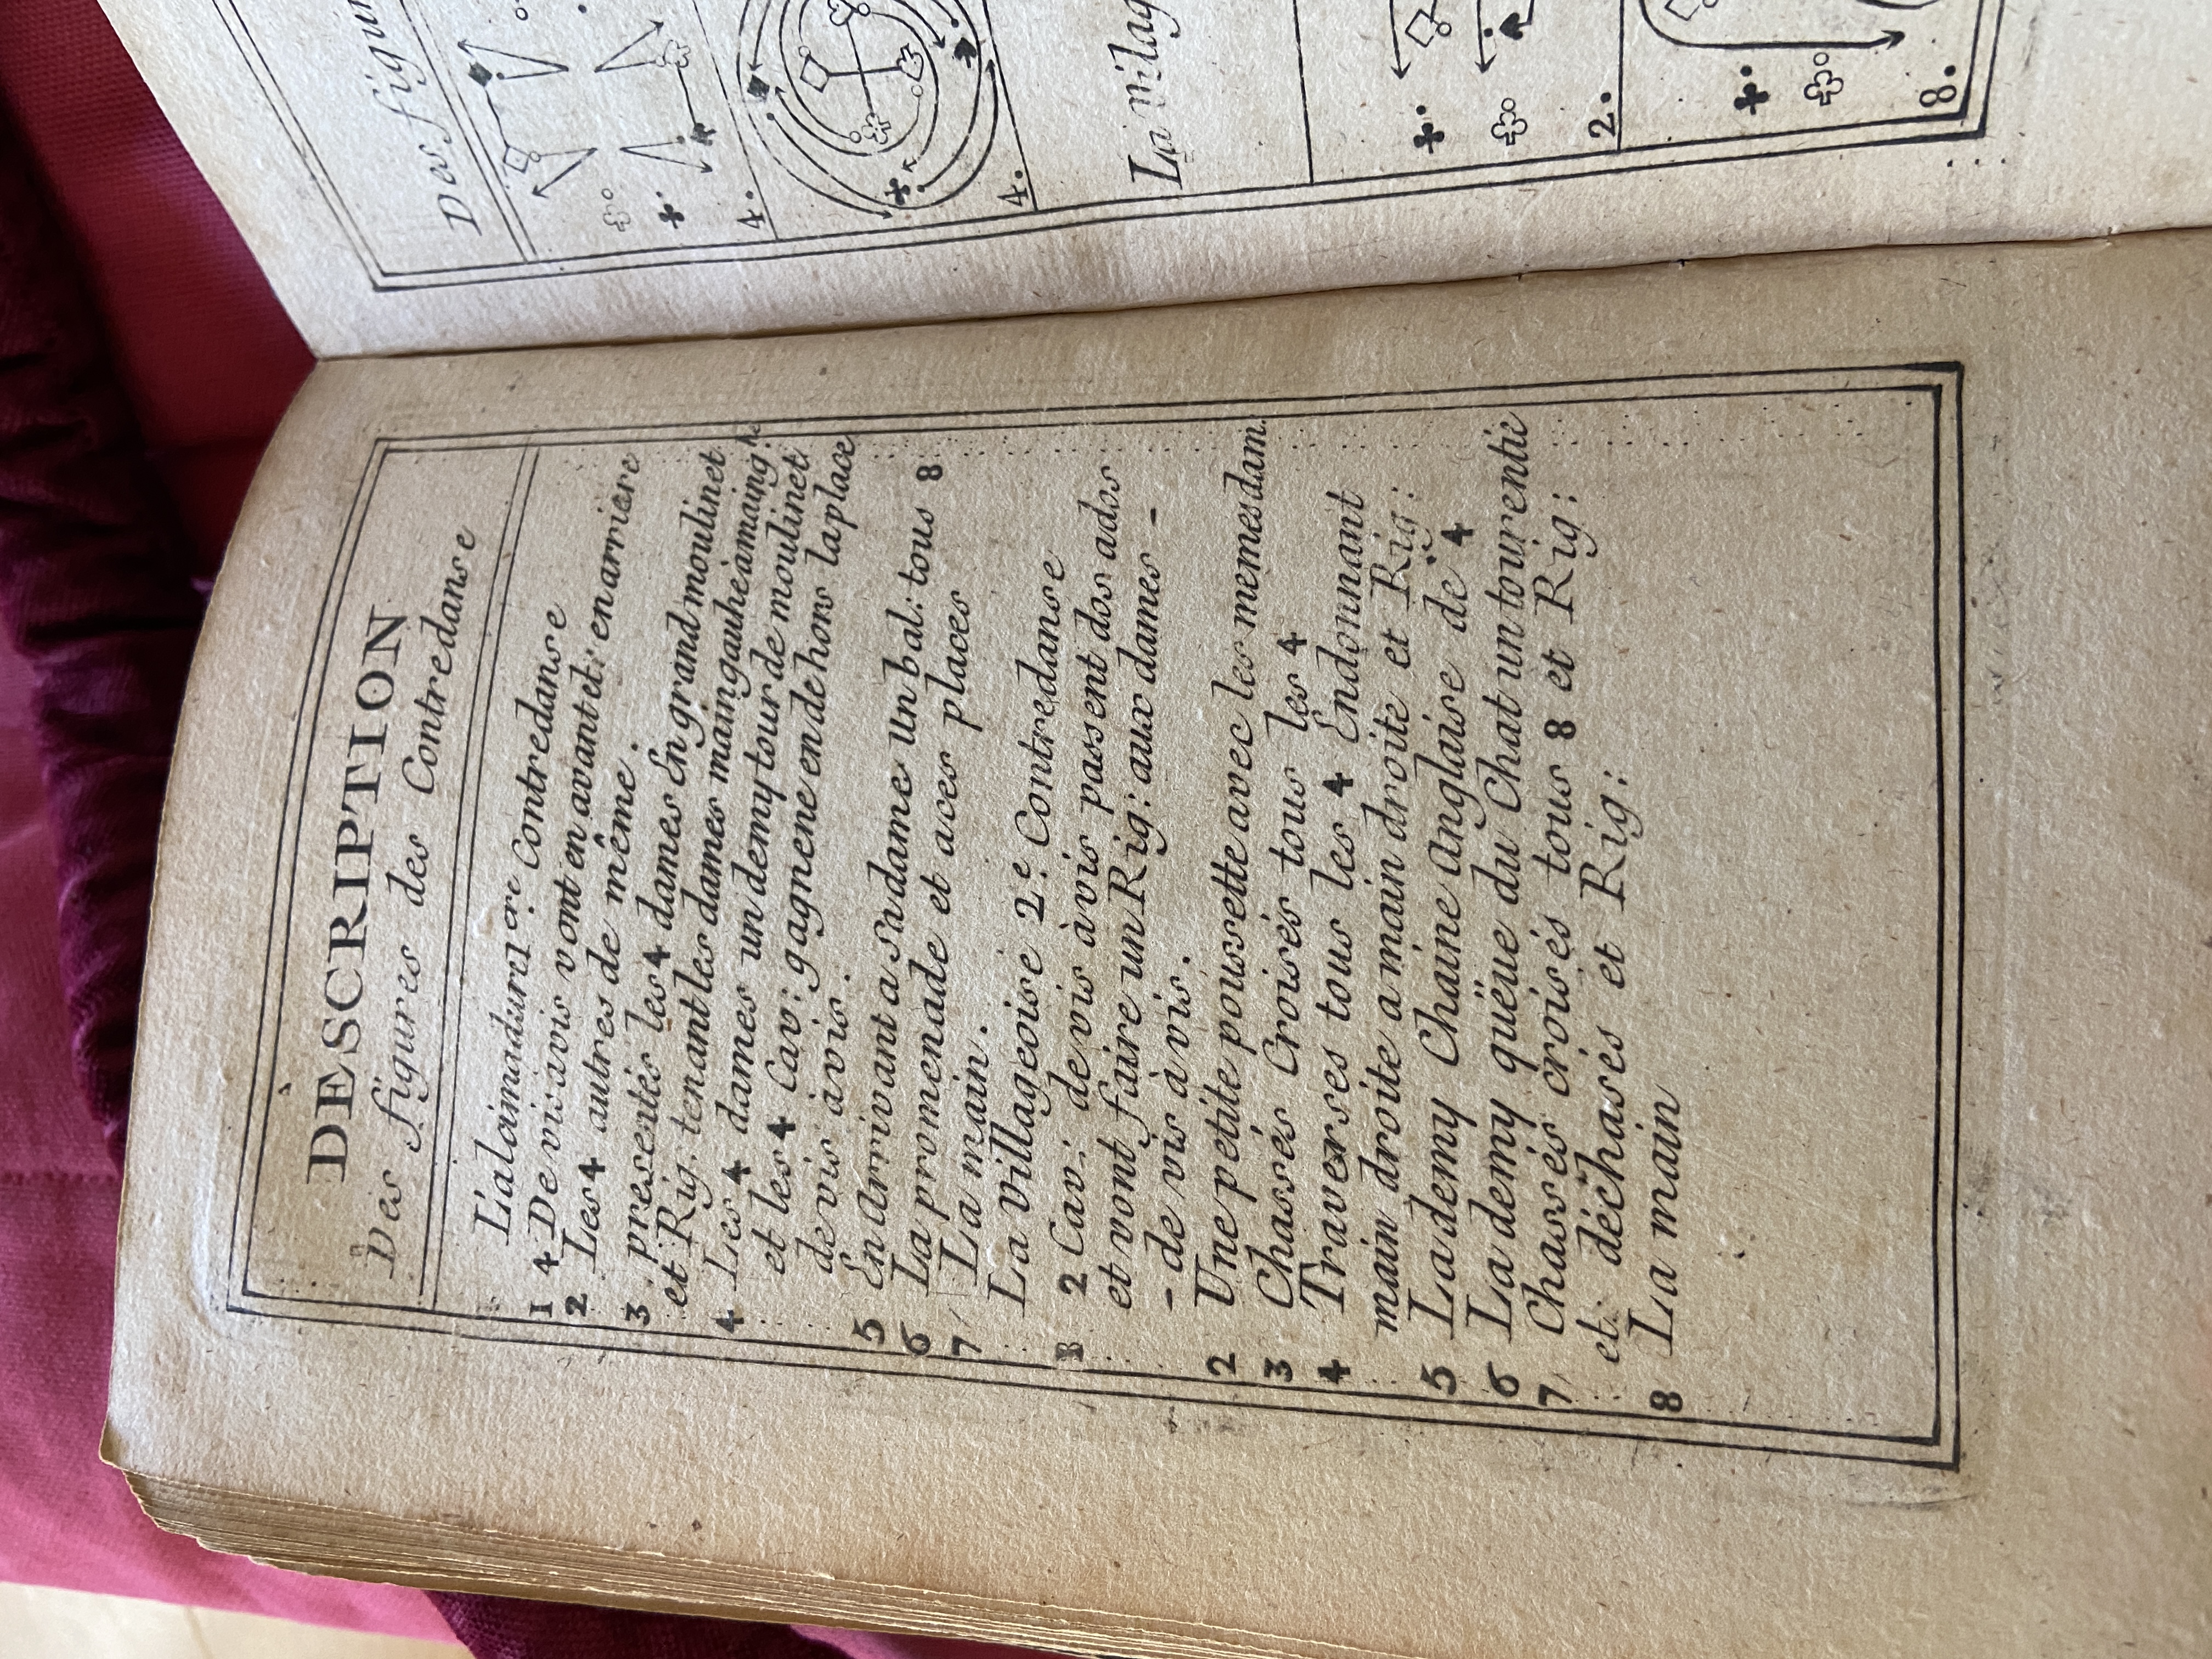 DESCRIPTION
Des figures des Contredanse
L'alaimadurre 1.ere Contredanse
1 4 De vis avis vont en avant et: en arriere
2 Les 4 autres de même.
3 presentés les 4 dames En grand moulinet
et Rig: tenant les dames main gauhe a maing
4 Les 4 dames un demy tour de moulinet
et les 4 Cav: gagnene en de hors la place
de vis avis.
5 En Arrivant a Sa dame un bal: tous 8
6 La promenade et a ces places
7 La main.
La villageoise 2.e Contredanse
1 2 Cav: de vis à vis passent dos a dos
et vont faire un Rig: aux dames -
- de vis à vis.
2 Une petite poussette avec les memes dam.
3 Chassés Croisés tous les 4
4 Traverses tous les 4 Endonnant
main droite a main droite et Rig:
5 La demy Chaine Anglaise de 4
6 La demy quëue du Chat un tour entie
7 Chassés croisés tous 8 et Rig:
et: déchasés et Rig:
8 La main
Des figur
4.
4.
La vilag
2.
8.